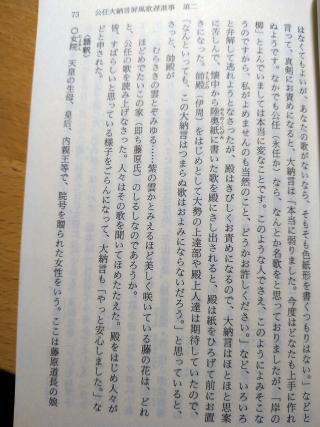 73　公任大納言屏風歌遅進事　第二
はなくてもよいが、あなたの歌がないなら、そもそも色紙形を書くつもりはない。」などと
言って、真剣にお責めになると、大納言は「本当に弱りました。今度はどなたも上手に作れ
ぬようです。なかでも公任（永任か）なら、なんとか名歌をと思っておりましたが、「岸の
柳」とよんでいましては本当に変なことです。このような人でさえ、このようによみそこな
うのですから、私がよめませんのも当然のこと、どうかお許しください。」など、いろいろ
と弁解して逃れようとなさったが、殿はきびしくお責めになるので、大納言はほとほと思案
に苦しんで、懐中から陸奥紙に書いた歌を殿にさし出されると、殿は紙をひろげて前にお置
きになった。帥殿（伊周）をはじめとして大勢の上達部や殿上人達は期待していたので、
「なんといっても、この大納言はつまらぬ歌はおよみにならないだろう。」と思っていると、
と、帥殿が
むらさきの雲とぞみゆる……紫の雲かとみえるほど美しく咲いている藤の花は、どれ
ほどめでたいこの家（即ち藤原氏）のしるしなのであろうか。
と、公任の歌を読み上げなさった。人々はその歌を聞いてほめたたえた。殿をはじめ人々が
皆、すばらしいと思っている様子をごらんになって、大納言も「やっと安心しました。」な
どと申された。
〈語釈〉
〇女院　天皇の生母、皇后、内親王等で、院号を贈られた女性をいう。ここは藤原道長の娘